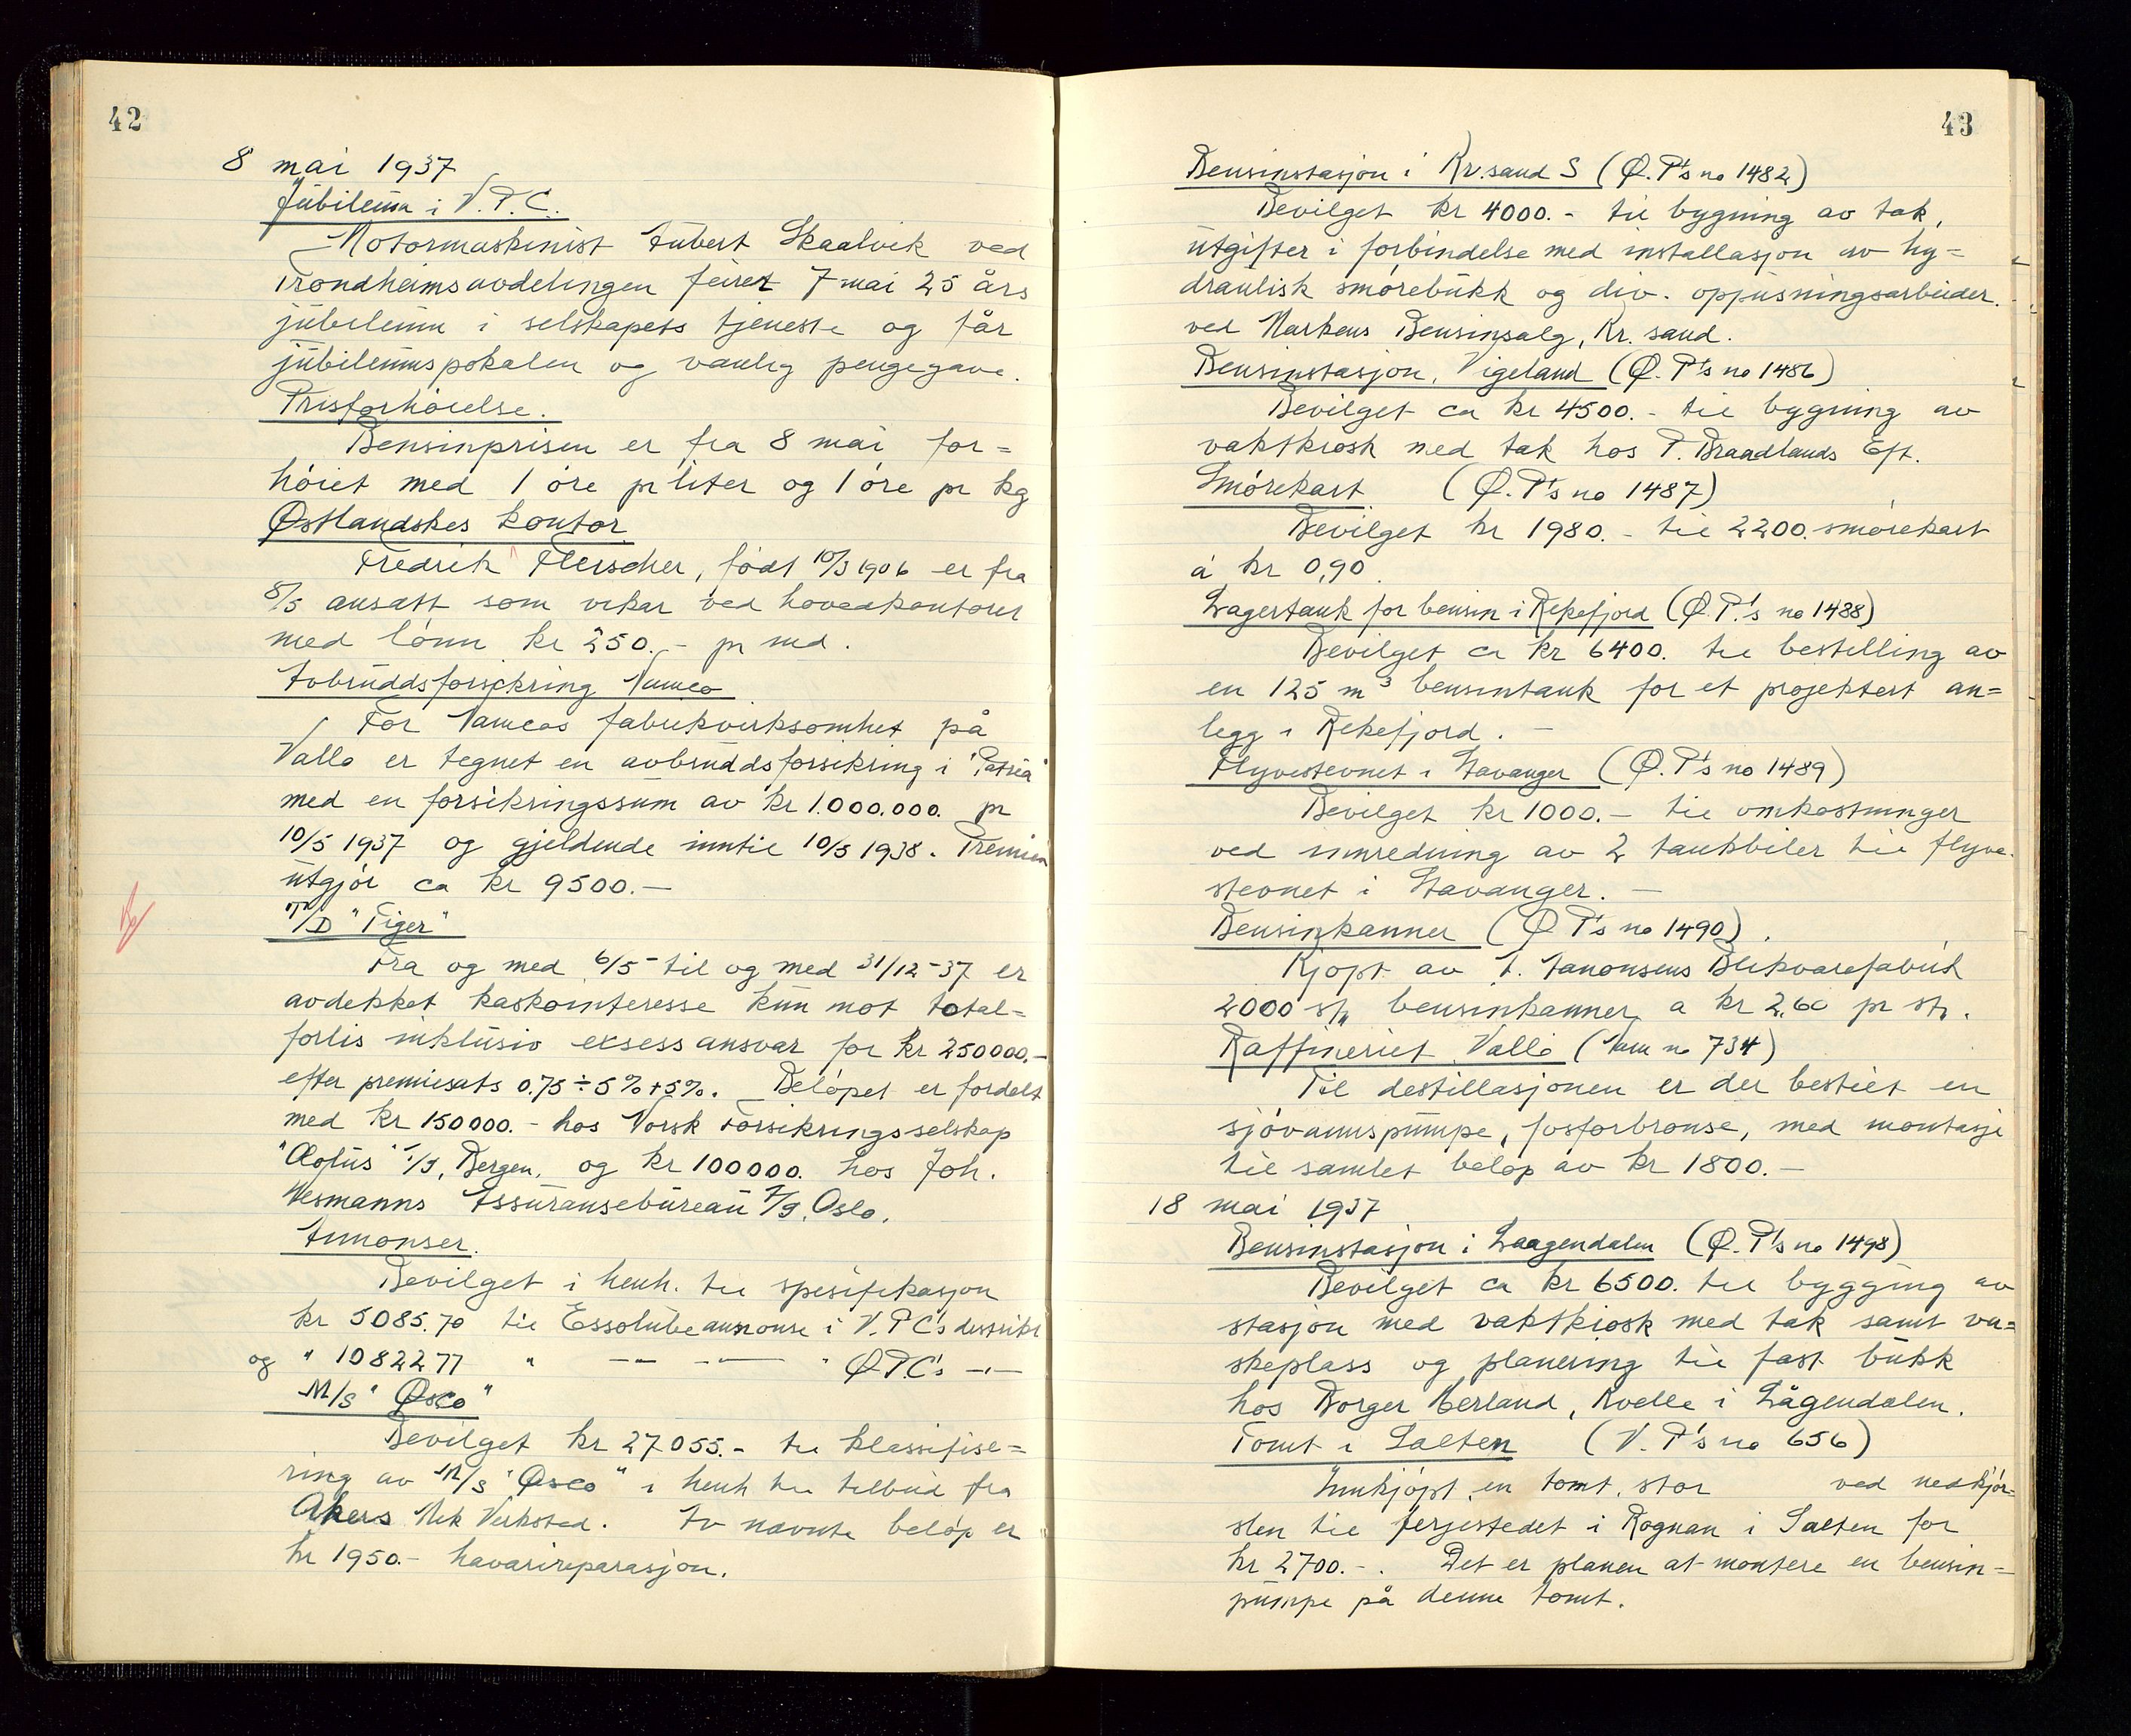 42
8 mai 1937
Jubileum i V.P.C.
Motormaskinist Aubert Skaalvik ved
Trondheimsavdelingen feiret 7 mai 25 års
jubileum i selskapets tjeneste og får
jubileumspokalen og vanlig pengegave.
Prisforhöielse.
Bensinprisen er fra 8 mai for=
höiet med 1 öre pr liter og 1 öre pr kg
Østlandskes kontor
Fredrik Fleischer, födt 10/3 1906 er fra
8/5 ansatt som vikar ved hovedkontoret
med lönn kr 250.- pr md.
Avbruddsforsikring Vamco
For Vamcos fabrikvirksomhet på
Vallö er tegnet en avbruddsforsikring i "Patria"
med en forsikringssum av kr 1.000.000. pr
10/5 1937 og gjeldende inntil 10/5 1938. Premien
utgjör ca kr 9500.—
T/D "Tiger"
Fra og med 6/5 - til og med 31/12-37 er
avdekket kaskointeresse kun mot total=
forlis inklusiv eksessansvar for kr 250000.-
efter premiesats 0.75 ÷ 5% + 5%. Belöpet er fordelt
med kr 150000.- hos Norsk Forsikringsselskap
"Æolus" A/S, Bergen, og kr 100000. hos Joh.
Wesmanns Assuransebureau A/S, Oslo.
Annonser.
Bevilget i henh. til spesifikasjon
kr 5085.70 til Essolubeannonse i V.P.C's distrikt
og " 1082277 " —"— —"— " Ø.P.C's —"—
M/S "Øsco"
Bevilget kr 27055.- til klassifise=
ring av M/S "Øsco" i henh til tilbud fra
Akers Mek Verksted. Av nevnte belöp er
kr 1950.- havarireparasjon.
43
Bensinstasjon i Kr.sand S (Ø.P's no 1482)
Bevilget kr 4000.- til bygning av tak,
utgifter i forbindelse med installasjon av hy=
draulisk smörebukk og div. oppusningsarbeider.
ved Markens Bensinsalg, Kr. sand.
Bensinstasjon, Vigeland (Ø.P's no 1486)
Bevilget ca kr 4500.- til bygning av
vaktkiosk med tak hos P. Braadlands Eft.
Smörekart (Ø.P's no 1487)
Bevilget kr 1980.- til 2200. smörekart
á kr 0,90
Lagertank for bensin i Rekefjord (Ø.P.'s no 1488)
Bevilget ca kr 6400. til bestilling av
en 125 m³ bensintank for et projektert an=
legg i Rekefjord.—
Flyvestevnet i Stavanger (Ø.P's no 1489)
Bevilget kr 1000.- til omkostninger
ved innredning av 2 tankbiler til flyve-
stevnet i Stavanger.—
Bensinkanner (Ø.P's no 1490).
Kjöpt av A. Aanonsens Blikvarefabrik
2000 st, bensinkanner a kr 2.60 pr st.
Raffineriet Vallö (Vam no 734)
Til destillasjonen er der bestilt en
sjövannspumpe, fosforbronse, med montasje
til samlet belöp av kr 1800.—
18 mai 1937
Bensinstasjon i Laagendalen (Ø.P's no 1498)
Bevilget ca kr 6500. til bygging av
stasjon med vaktkiosk med tak samt va=
skeplass og planering til fast bukk
hos Borger Herland, Kvelle i Lågendalen.
Tomt i Salten (V.P's no 656)
Innkjöpt en tomt, stor ved nedkjör=
slen til ferjestedet i Rognan i Salten for
kr 2700.-. Det er planen at montere en bensin=
pumpe på denne tomt.